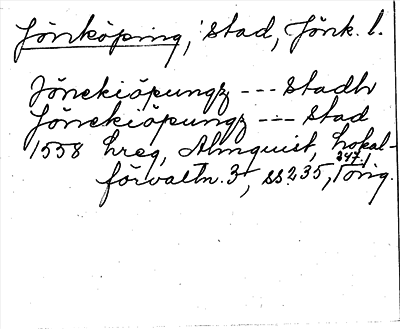 Jönköping, stad, Jönk. l.
Jönekiöpungz --- Stadh
Jönekiöpungz --- Stad
1558 hreg, Almquist, Lokal-
förvaltn. 3, ss 235, 247, orig.